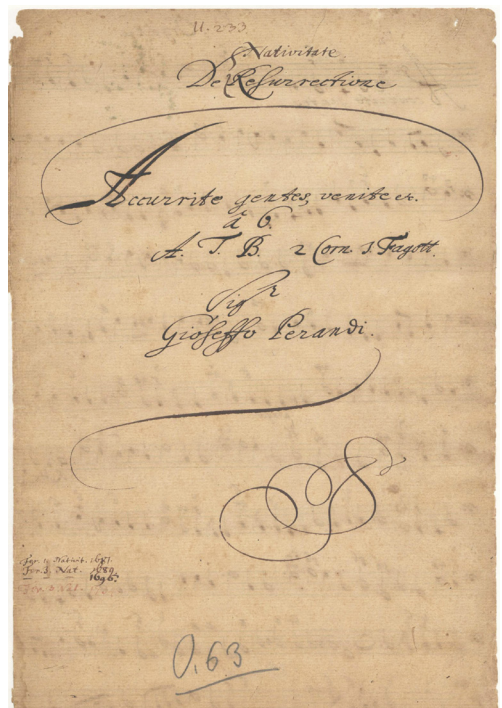 U. 233.
Nativitate
De Resurrectione
Accurrite gentes, venite etc.
à 6.
A. T. B. 2 Corn. 1. Fagott.
Sigr
Gioseffo Perandi.
Nativit. 1681.
Fer. 3. Nat. 1689.
1696.
O. 63